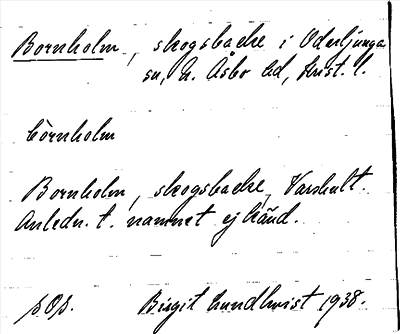 Bornholm, skogsbacke i Oderljunga
sn, N. Åsbo hd, Krist. l.
bòrnholm
Bornholm, skogsbacke, Varshult.
Anledn. t. namnet ej känd.
s. 08. Birgit Lundkvist 1938.